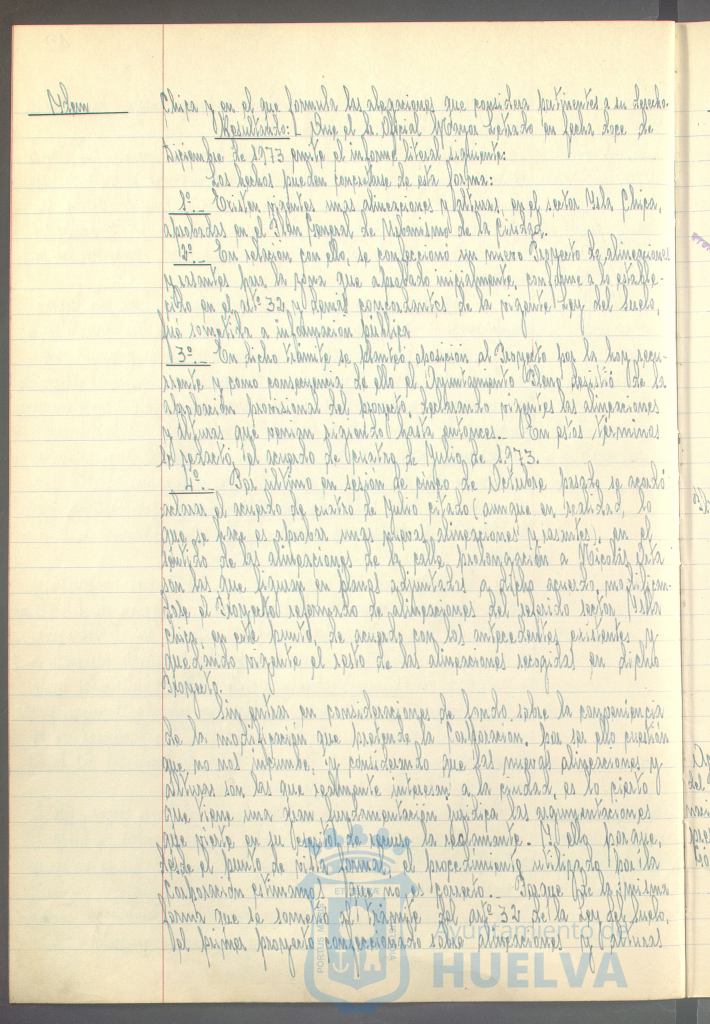 Idem
Chica y en el que formula las alegaciones que considera pertinentes a su derecho.
Resultando: Que el Sr. Oficial Mayor Letrado en fecha doce de
Diciembre de 1973 emite el informe literal siguiente:
Los hechos pueden concretarse de esta forma:
1º.- Existen vigentes unas alineaciones y alturas en el sector Isla Chica,
aprobadas en el Plan General de Urbanismo de la Ciudad.
2º.- En relación con ello, se confeccionó un nuevo Proyecto de alineaciones
y rasantes para la zona que aprobado inicialmente, conforme a lo estable-
cido en el artº 32 y demás concordantes de la vigente Ley del Suelo,
fue sometido a información pública
3º.- En dicho trámite se planteó oposición al Proyecto por la hoy recu-
rrente y como consecuencia de ello el Ayuntamiento Pleno desistió de la
aprobación provisional del proyecto, declarando vigentes las alineaciones
y alturas que venían rigiendo hasta entonces.- En estos términos
se redactó el acuerdo de cuatro de Julio de 1973.
4º.- Por último en sesión de cinco de Octubre pasado se acordó
aclarar el acuerdo de cuatro de Julio citado (aunque en realidad, lo
que se hace es aprobar unas nuevas alineaciones y rasantes) en el
sentido de las alineaciones de la calle prolongación a Nicolás Orta
son las que figuran en planos adjuntados a dicho acuerdo, modificán-
dose el Proyecto reformado de alineaciones del referido sector Isla
Chica, en este punto, de acuerdo con los antecedentes existentes y
quedando vigente el resto de las alineaciones recogidas en dicho
Proyecto.
Sin entrar en consideraciones de fondo sobre la conveniencia
de la modificación que pretende la Corporación, por ser ello cuestión
que no nos incumbe, y considerando que las nuevas alineaciones y
alturas son las que realmente interesan a la ciudad, es lo cierto
que tiene una gran fundamentación jurídica las argumentaciones
que vierte en su escrito de recurso la reclamante. Y ello porque,
desde el punto de vista formal, el procedimiento utilizado por la
Corporación estimamos que no es correcto.- Porque de la misma
forma que se sometió al trámite del artº 32 de la Ley del Suelo,
del primer proyecto confeccionado sobre alineaciones y alturas
Ayuntamiento de
HUELVA